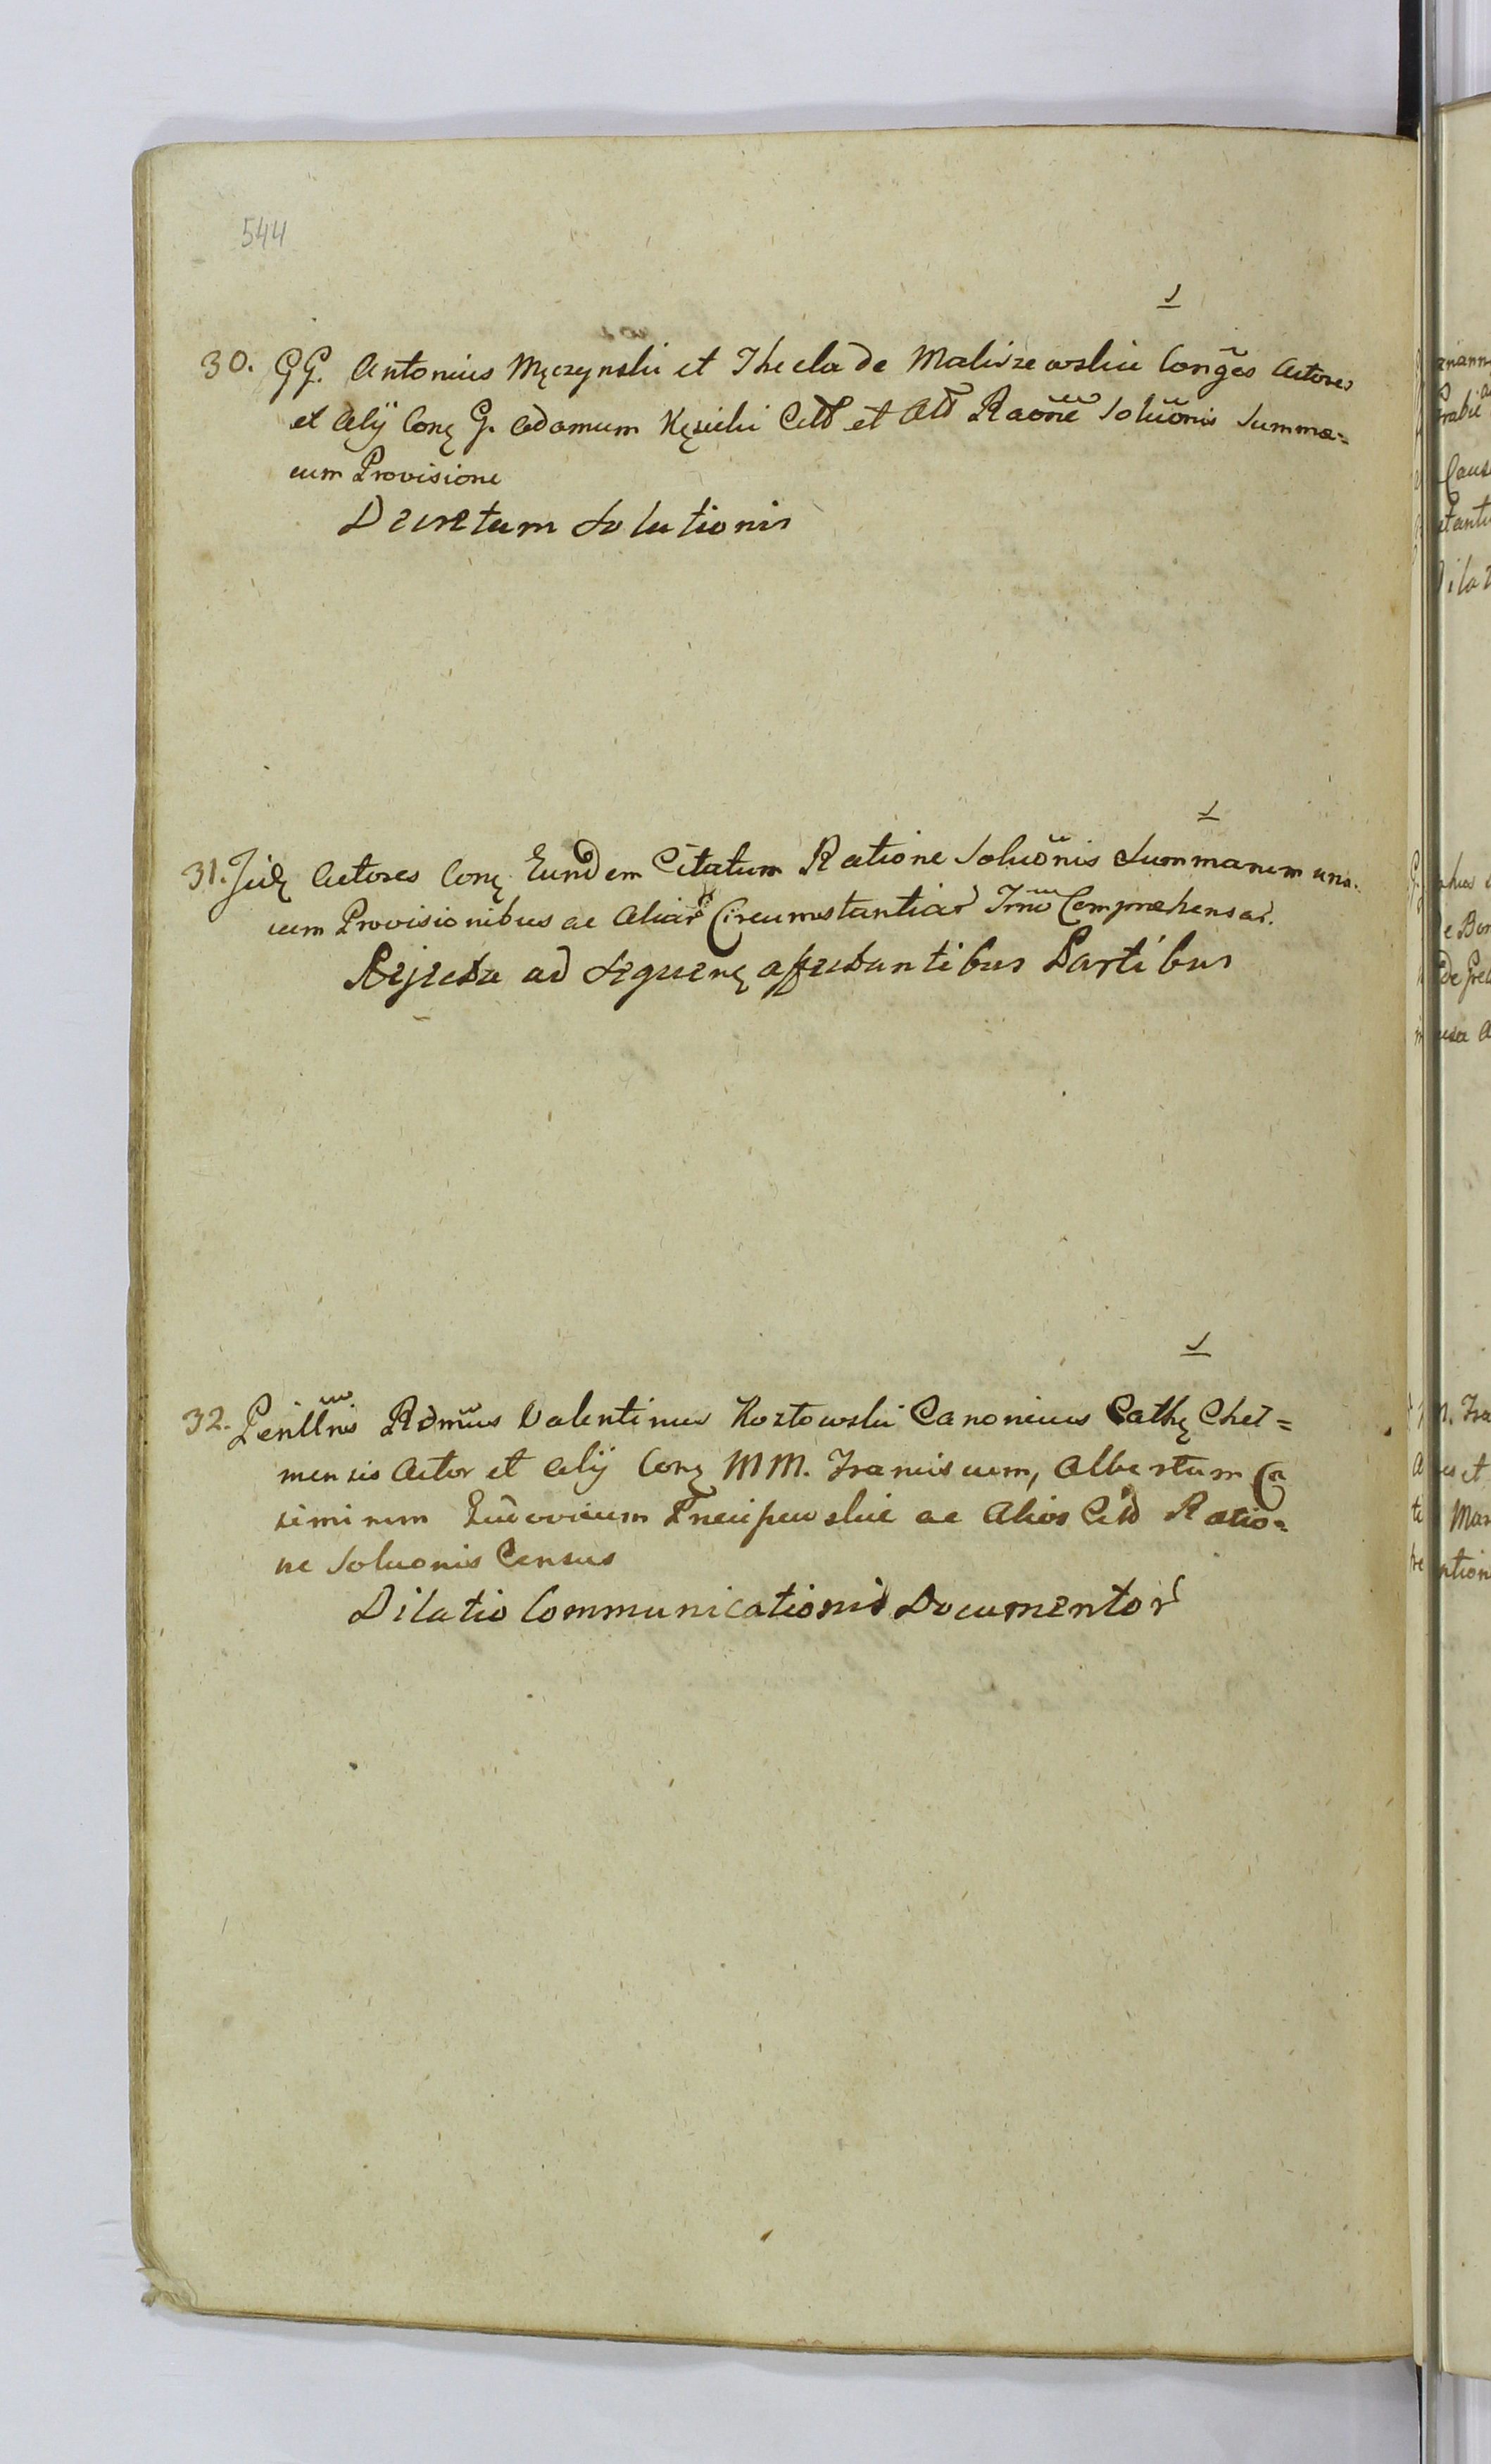 544
30. GG. Antonius Męczynski et Thecla de Maliszewskie Conges Actores
et Alij Conę G. Adamum Kęsicki Citt et Att Raõne Soluõnis Summæ
cum Provisione
Decretum Solutionis
31. Jidę Actores Conę Eundem Citatum Ratione Soluõnis Summarum una
cum Provisionibus ac Aliar Circumstantiar Compræhensar.
Rejecta ad Sequenę affectantibus Partibus
32. Perillris Rdmus Valentinus Kozłowski Canonicus Cathę Cheł=
mensis Actor et Alij Conę MM. Franciscum, Albertum Ca
simirum Ludovicum ac Alios Citt Ratio=
ne Soluonis Census
Dilatio Communicationis Documentor